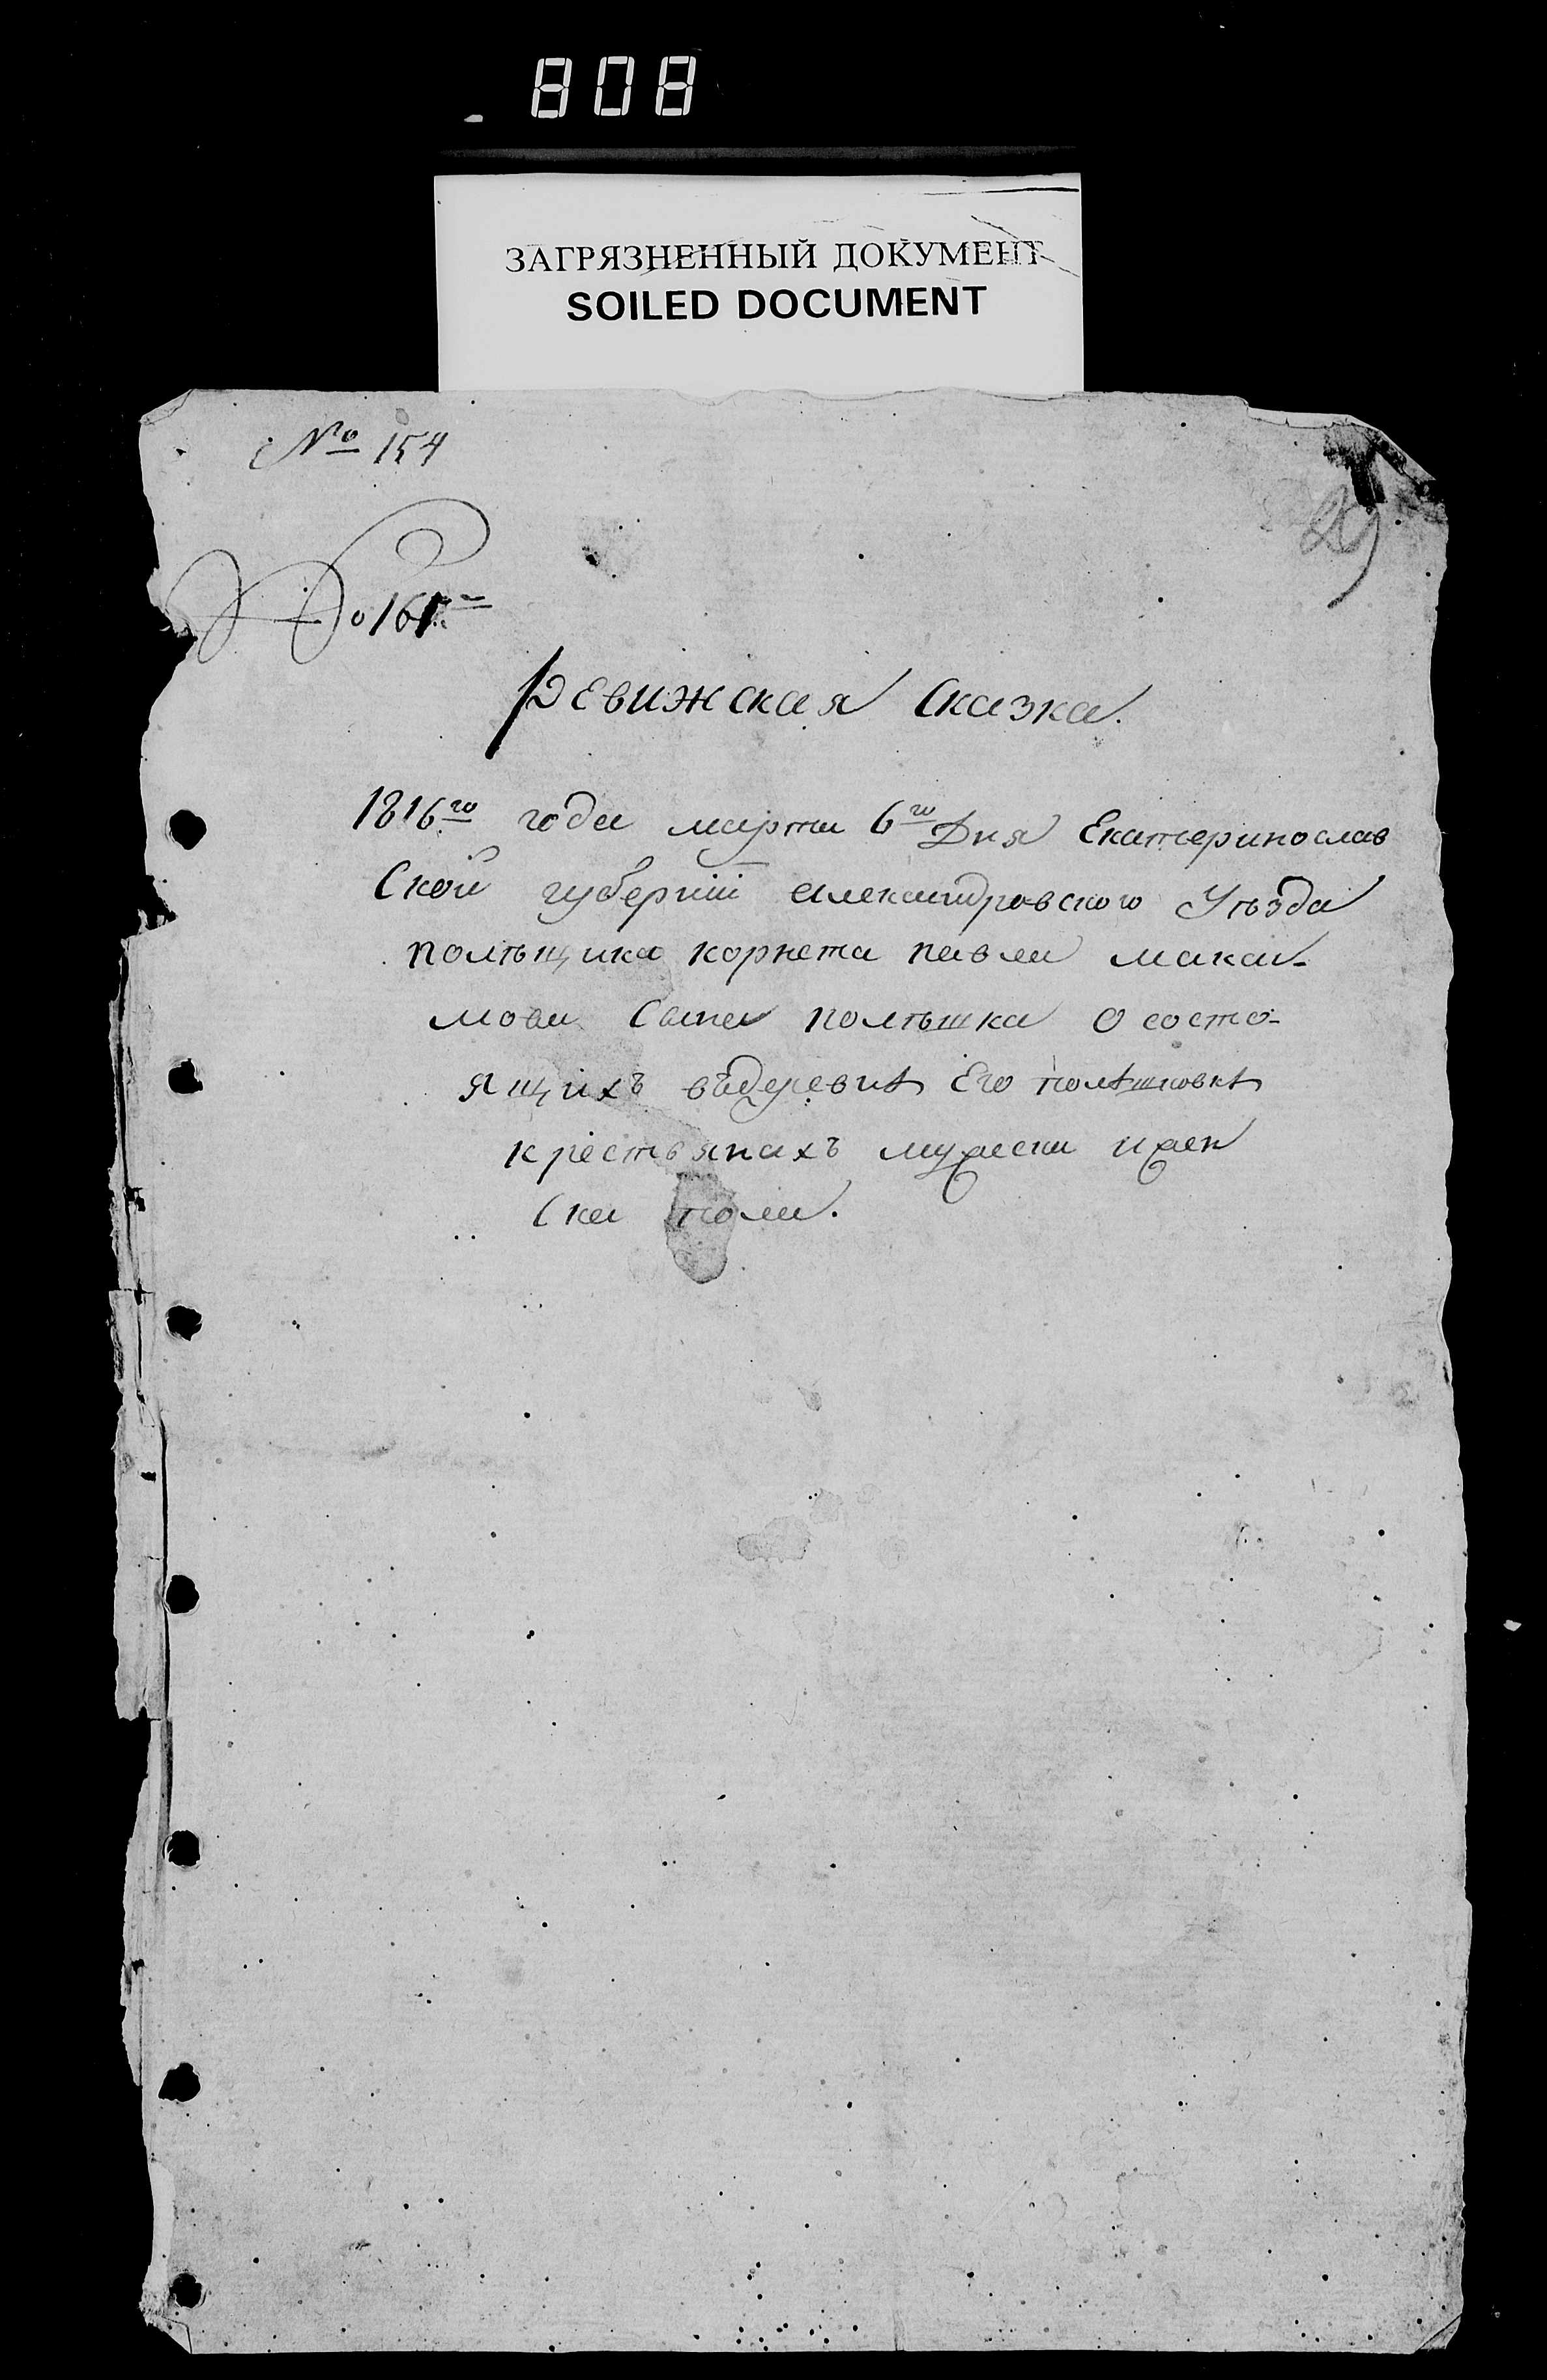 808
ЗАГРЯЗНЕННЫЙ ДОКУМЕНТ
SOILED DOCUMENT
№ 154
29
ревижская сказка.
1816го года марта 6го Дня Екатеринослав
Ской губернии александровского Уѣзда
помѣщика корнета павла макси-
мова Сына помѣшка О состо-
ящихъ въдеревнѣ Его
крестьянахъ мужеска ижен
Ска пола.